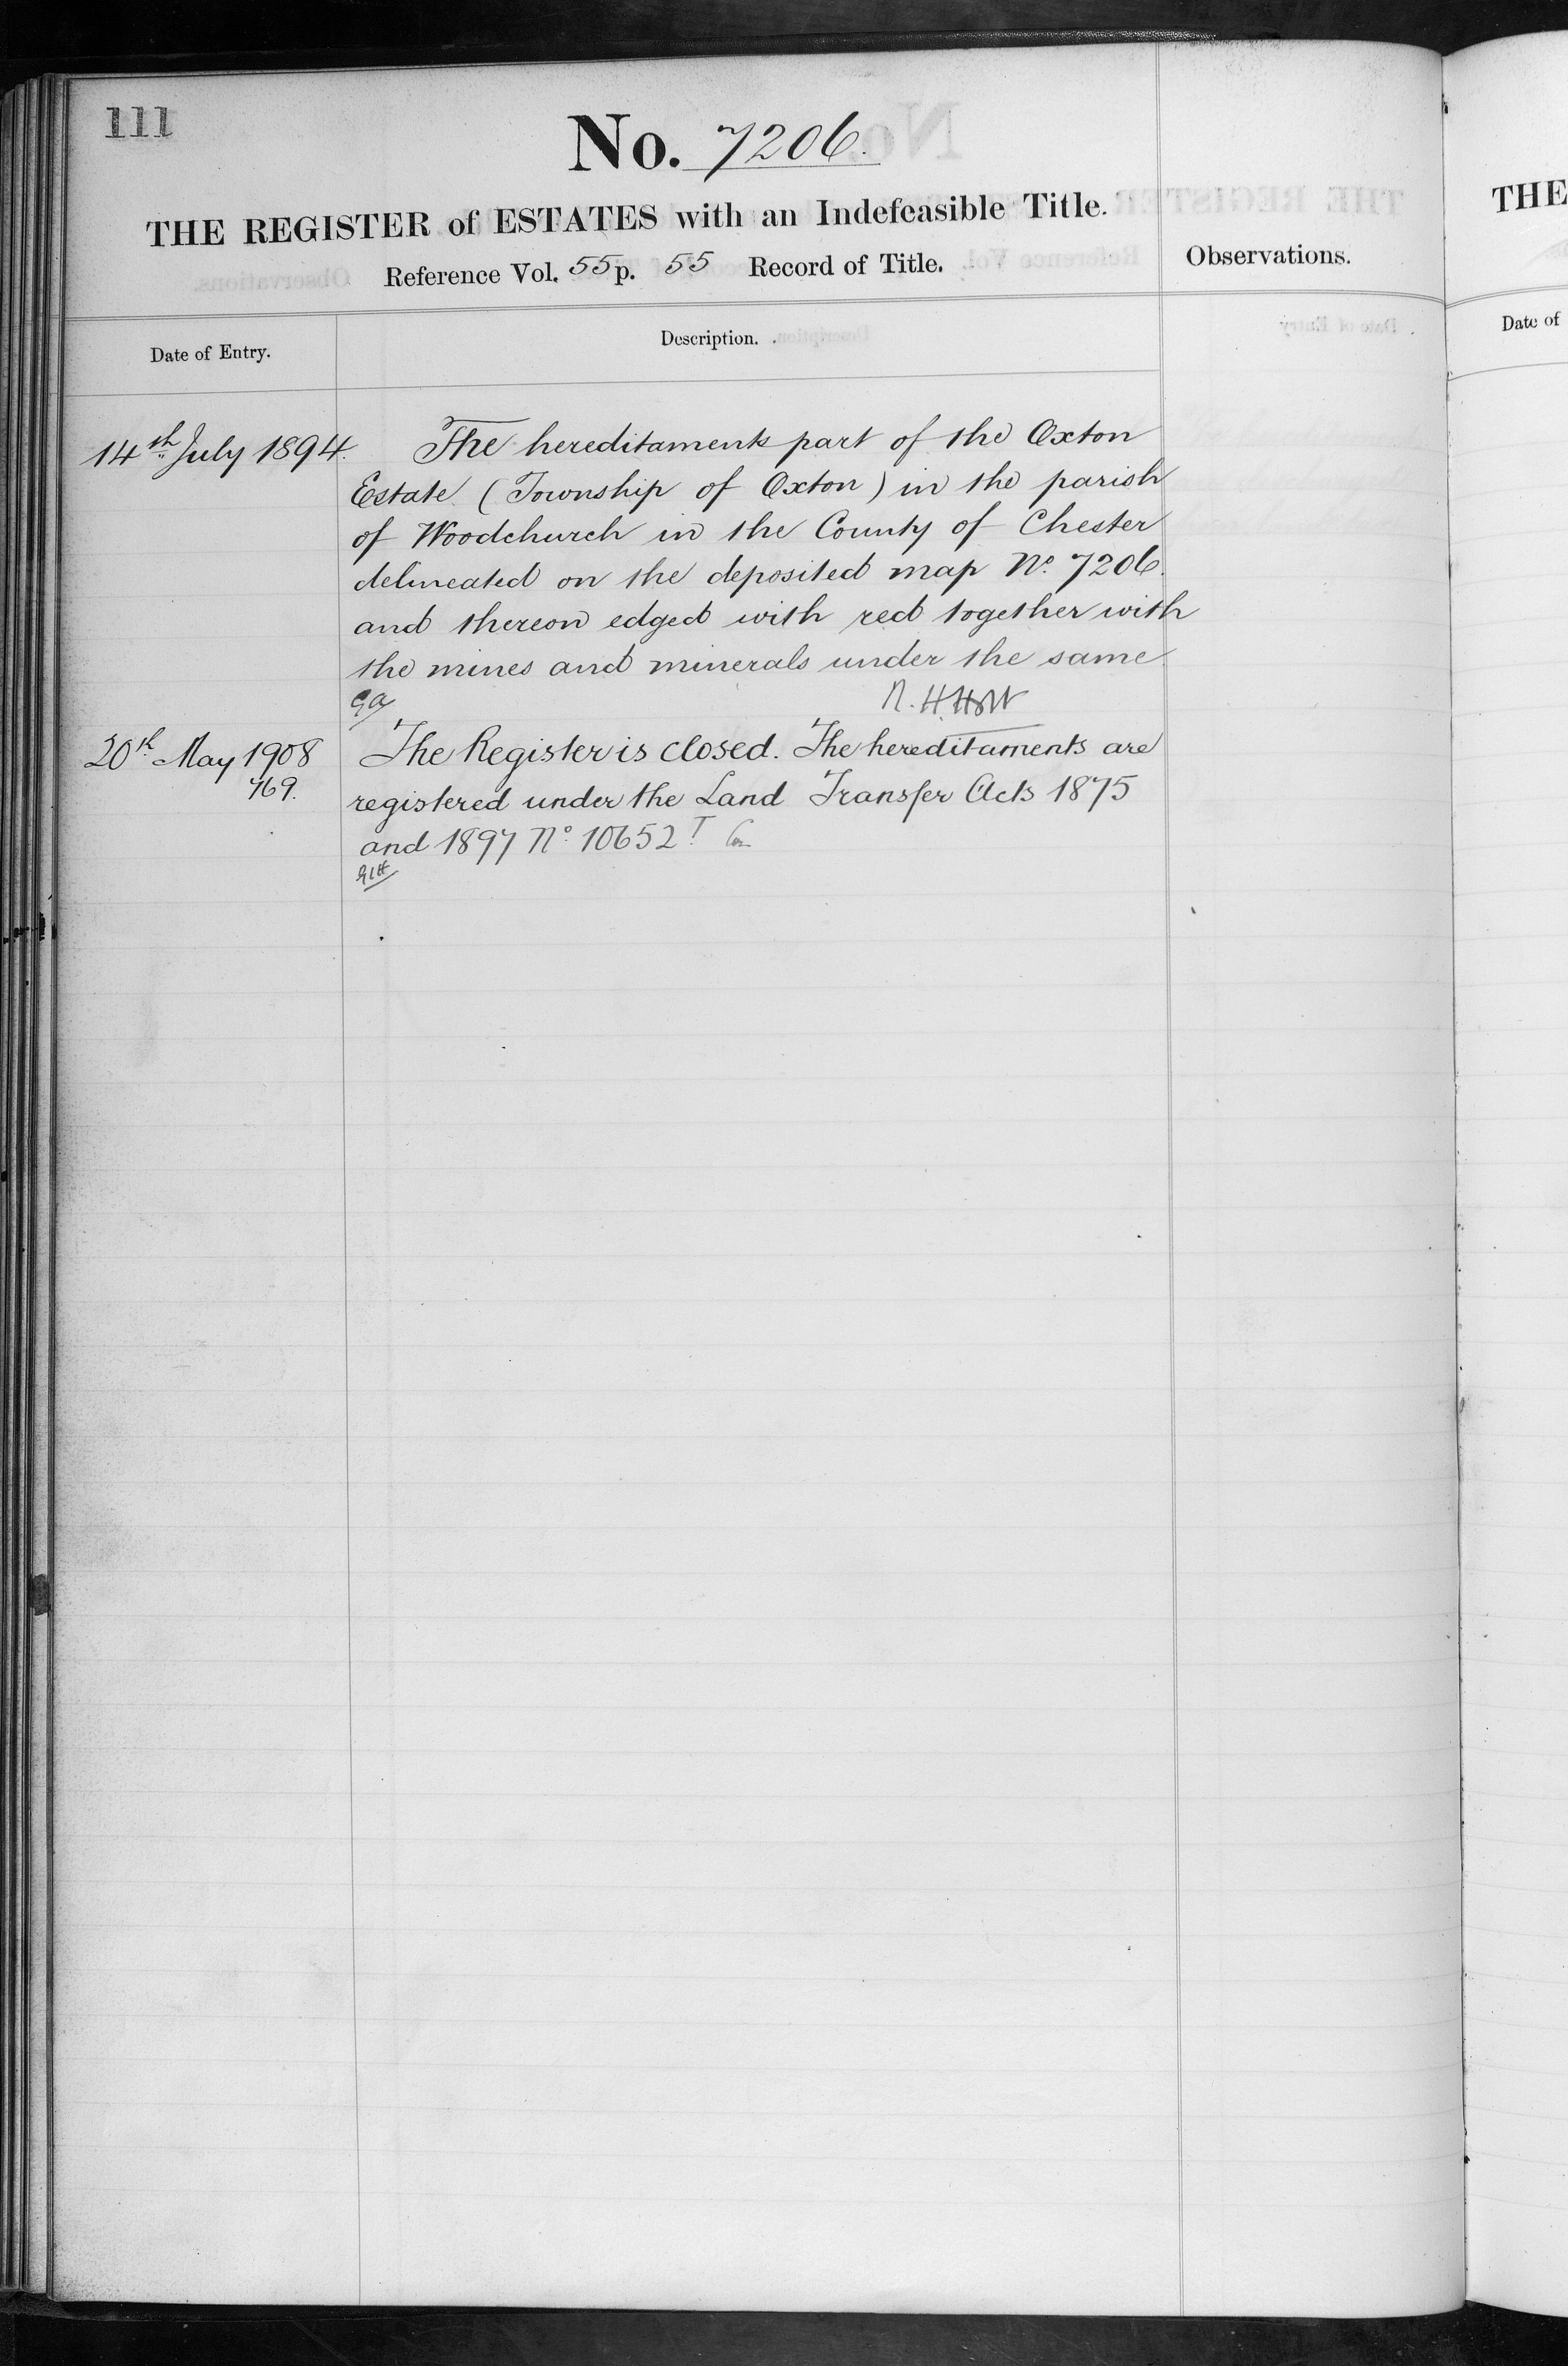 111
No. 7206.
THE REGISTER of ESTATES with an Indefeasible Title.
Reference Vol. 55 p. 55 Record of Title.
Observations.
Date of Entry.
Description.
14th July 1894.
The hereditaments part of the Oxton
Estate (Township of Oxton) in the parish
of Woodchurch in the County of Chester
delineated on the deposited map No. 7206.
and thereon edged with red together with
the mines and minerals under the same
R. H. Holt
20th May 1908
769.
The Register is closed. The hereditaments are
registered under the Land Transfer Acts 1875
and 1897 No. 10652T
THE
Date of